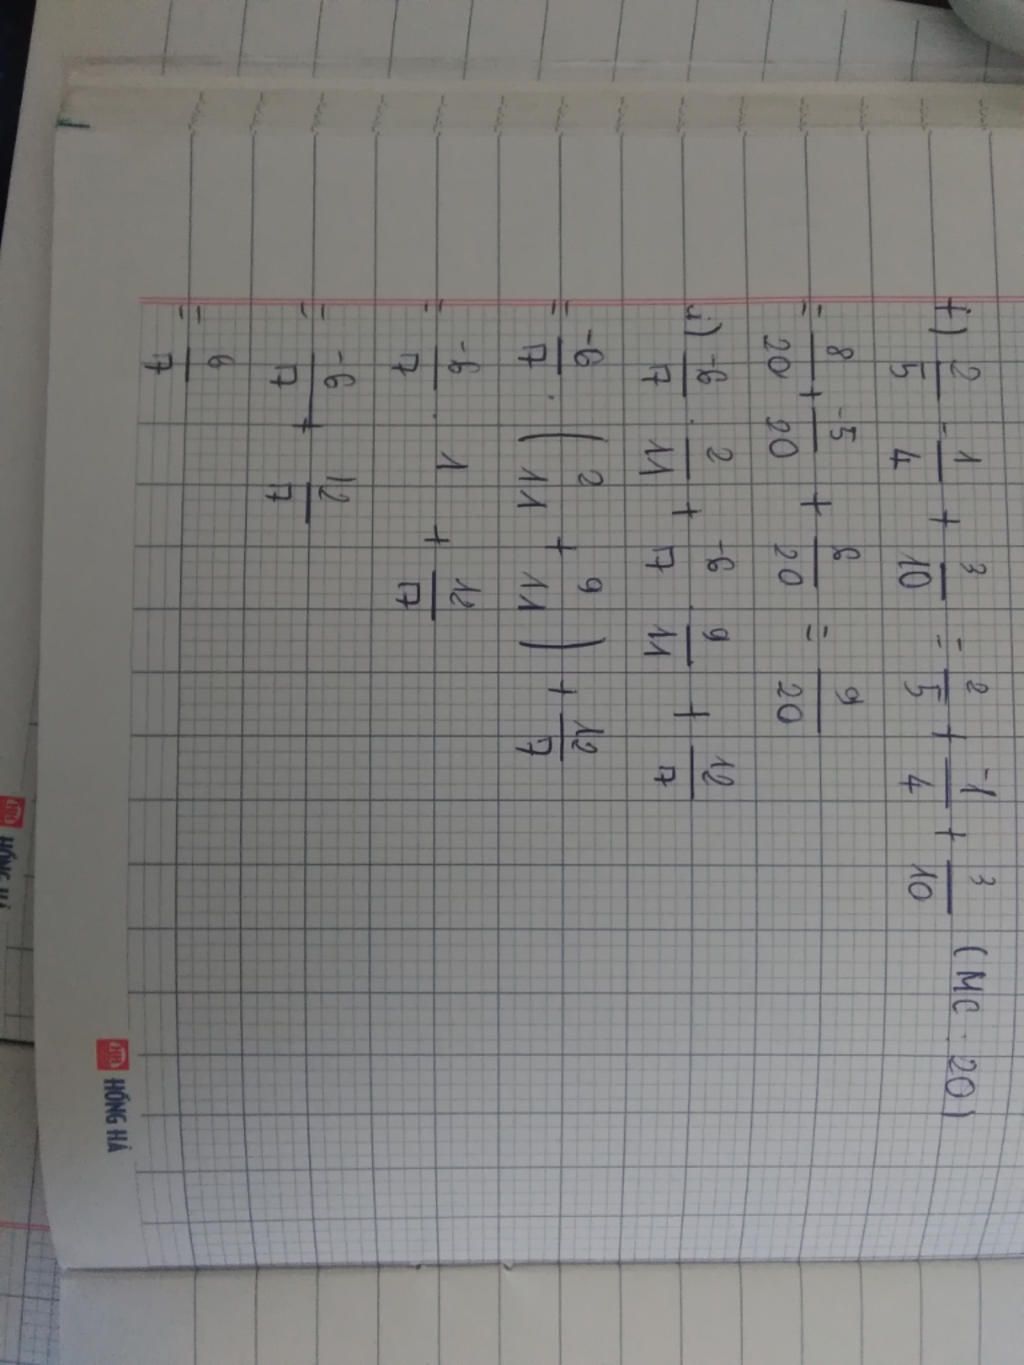 f) 2/5 - 1/4 + 3/10 = 2/5 + -1/4 + 3/10 (MC: 20)
= 8/20 + -5/20 + 6/20 = 9/20
i) -6/7 . 2/11 + -6/7 . 9/11 + 12/7
= -6/7 . (2/11 + 9/11) + 12/7
= -6/7 . 1 + 12/7
= -6/7 + 12/7
= 6/7
HỒNG HÀ
HỒNG HÀ